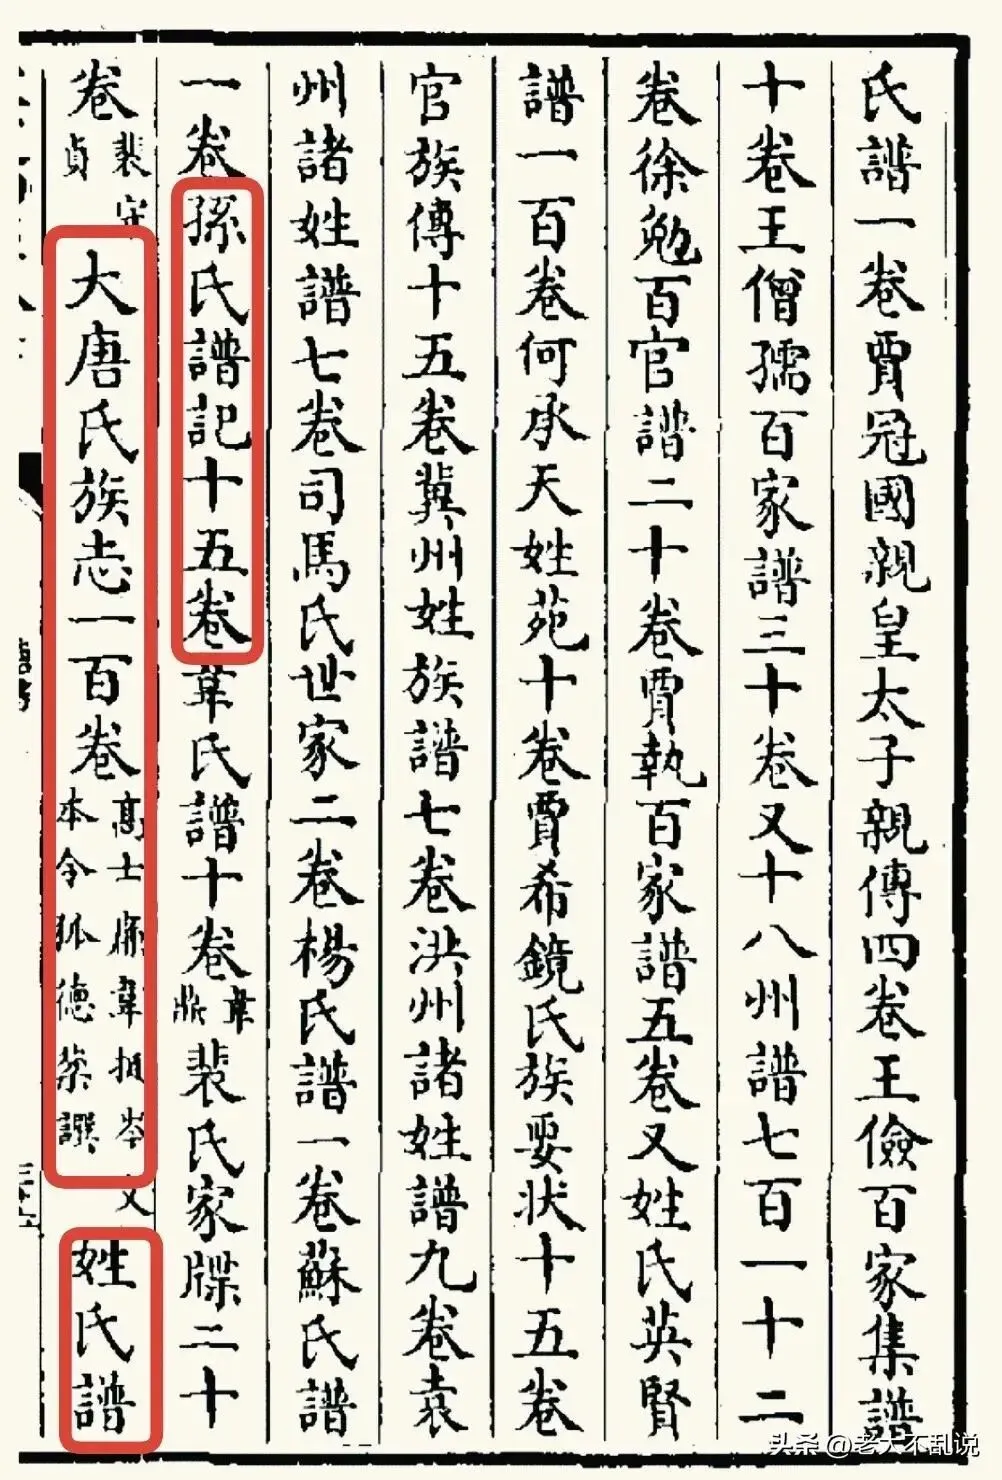 氏譜一卷賈冠國親皇太子親傳四卷王儉百家集譜
十卷王僧孺百家譜三十卷又十八州譜七百一十二
卷徐勉百官譜二十卷賈執百家譜五卷又姓氏英賢
譜一百卷何承天姓苑十卷賈希鏡氏族要狀十五卷
官族傳十五卷冀州姓族譜七卷洪州諸姓譜九卷袁
州諸姓譜七卷司馬氏世家二卷楊氏譜一卷蘇氏譜
一卷孫氏譜記十五卷韋氏譜十卷韋鼎裴氏家牒二十
卷裴守貞大唐氏族志一百卷高士廉韋挺岑文本令狐德棻撰姓氏譜
头条 @老大不乱说